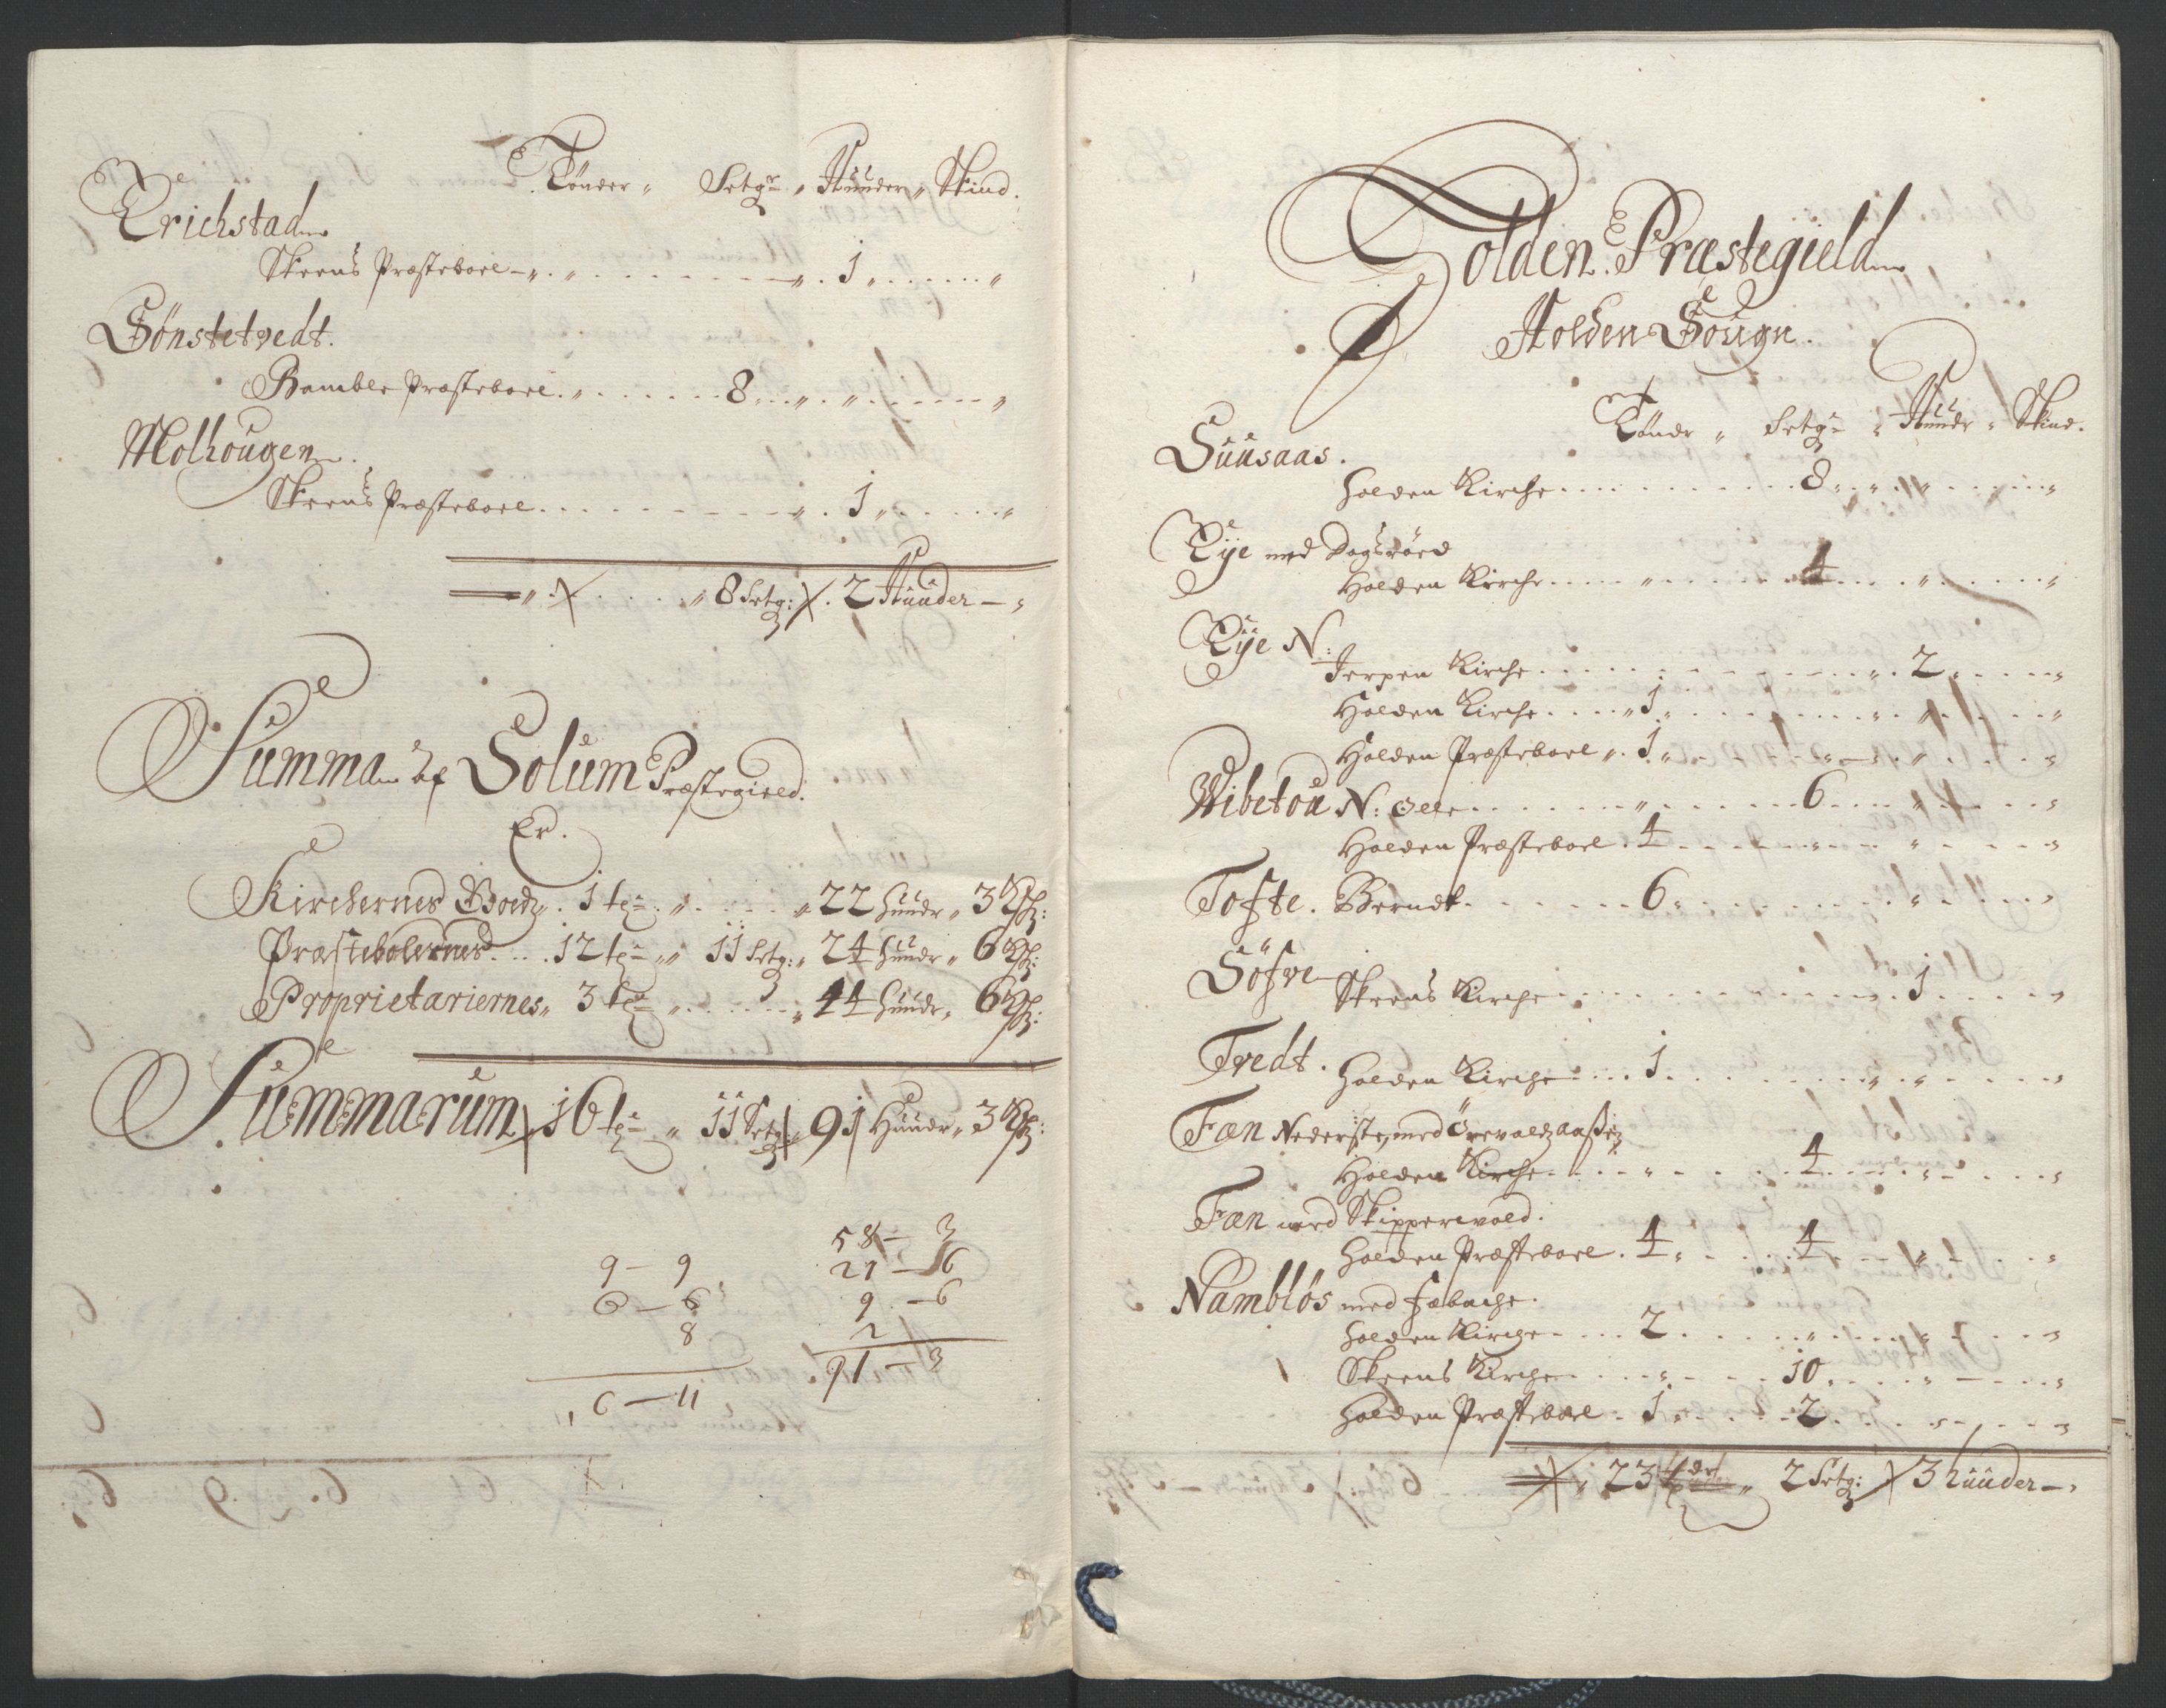 Tönder „ Setgr „ Huuder „ Skind.
Erichstad
Skeens Præsteboel - „ . „ . . . . „ . 1 „ . . . . „
Sönstetvedt.
Bamble Præsteboel . „ . . . . 8 . . „ . „ . . . . „
Molhougen.
Skeens Præsteboel . . . . „ . 1 „ . . . . „
„ . . . . „ 8 Setg: . 2 Huuder - „
Summa af Solum Præstegield.
Er.
Kirchernes Boedz . 1 tr „ . . . „ 22 huudr „ 3 sk:
Præstebolernes . . . 12 tr „ „ 11 Setg: „ 24 huudr „ 6 sk:
Proprietariernes „ 3 tr „ . . . „ 44 huudr „ 6 sk:
Summarum 16 tr „ 11 Setg „ 91 Huudr „ 3 sk:
58 - 3
9 - 9 21 - 6
6 - 6 9 - 6
8 2
6 - 11 91 - 3
Holden Præstegield
Holden Sougn.
Tönder „ Setgr „ Huudr „ Skind.
Suusaas.
Holden Kirche . . . . 8 . . „ . „ . . . . „
Eye med Dagsröed
Holden Kirche . . . . „ . . . . 4 . . . „ . . . . „
Eye N:
Jerpen Kirche . . . . „ . 2 . . . . „
Holden Kirche . . . „ 1 . . . . „ . „ . . . . „
Holden Præsteboel „ . 1 „ . . . . „ . . . „ . . . „
Wibetou N: Oelle . . . . „ . . . . 6 . . . „ . . . „
Holden Præsteboel . 4 . . . . „ . . . „ . . . „
Tofte. Berndt . . . . 6 . . . . „ . . . „
Söfve
Skeens Kirche . . . . „ . 1 . . . . „
Tvedt. Holden Kirche . . . 1 . . . . „ . „ . . . „
Fæn Nederste, med Örevaldzaasen
Holden Kirche . . . „ . . . . 4 . . . „ . . . „
Fæn med Skipperevold.
Holden Præsteboel . 4 „ . . . 4 . . . „ . . . „
Namblös med Fæbache.
Holden Kirche . . . 2 . . . . „ . . . „ . . . „
Skeens Kirche . . . „ . . . 10 . . . „ . . . „
Holden Præsteboel . 1 „ . . . 2 . . . „ . . . „
23 tdr „ 2 Setg: 3 huuder - „